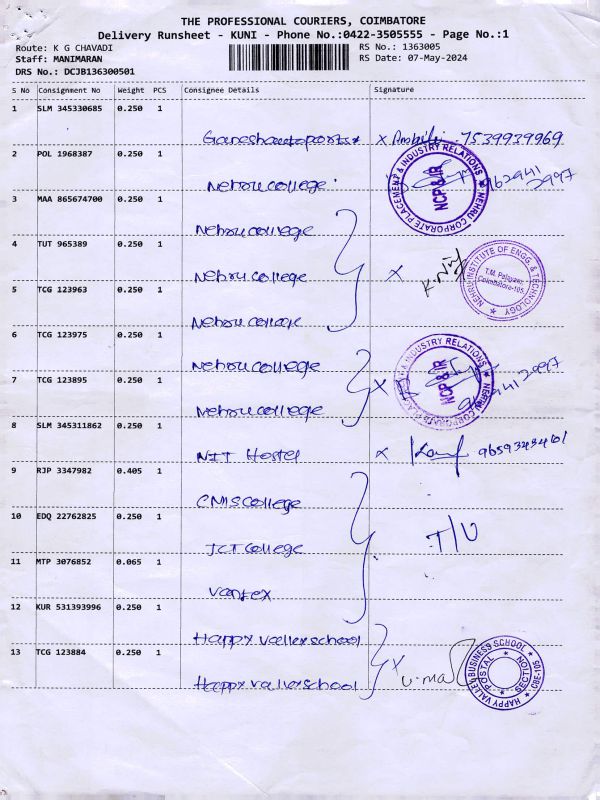 THE PROFESSIONAL COURIERS, COIMBATORE
Delivery Runsheet - KUNI - Phone No.:0422-3505555 - Page No.:1
Route: K G CHAVADI
RS No.: 1363005
Staff: MANIMARAN
RS Date: 07-May-2024
DRS No.: DCJB136300501
S No Consignment No Weight PCS Consignee Details Signature
1 SLM 345330685 0.250 1
Ganeshautoparts x 7539939969
2 POL 1968387 0.250 1
Nehru college
962941
2997
NEHRU CORPORATE PLACEMENT & INDUSTRY RELATIONS
NCP & IR
3 MAA 865674700 0.250 1
Nehru college
4 TUT 965389 0.250 1
Nehru college x
NEHRU INSTITUTE OF ENGG. & TECHNOLOGY
T.M. Palayam,
Coimbatore-105.
5 TCG 123963 0.250 1
Nehru college
6 TCG 123975 0.250 1
Nehru college x
NEHRU CORPORATE PLACEMENT & INDUSTRY RELATIONS
NCP & IR
7 TCG 123895 0.250 1
Nehru college
8 SLM 345311862 0.250 1
NIT Hostel x 9659343461
9 RJP 3347982 0.405 1
CMS College
10 EDQ 22762825 0.250 1
JCT College T/U
11 MTP 3076852 0.065 1
Vantex
12 KUR 531393996 0.250 1
Happy valley school
13 TCG 123884 0.250 1
Happy valley school x U.ma
HAPPY VALLEY BUSINESS SCHOOL
CBE-105
POSTAL SECTION